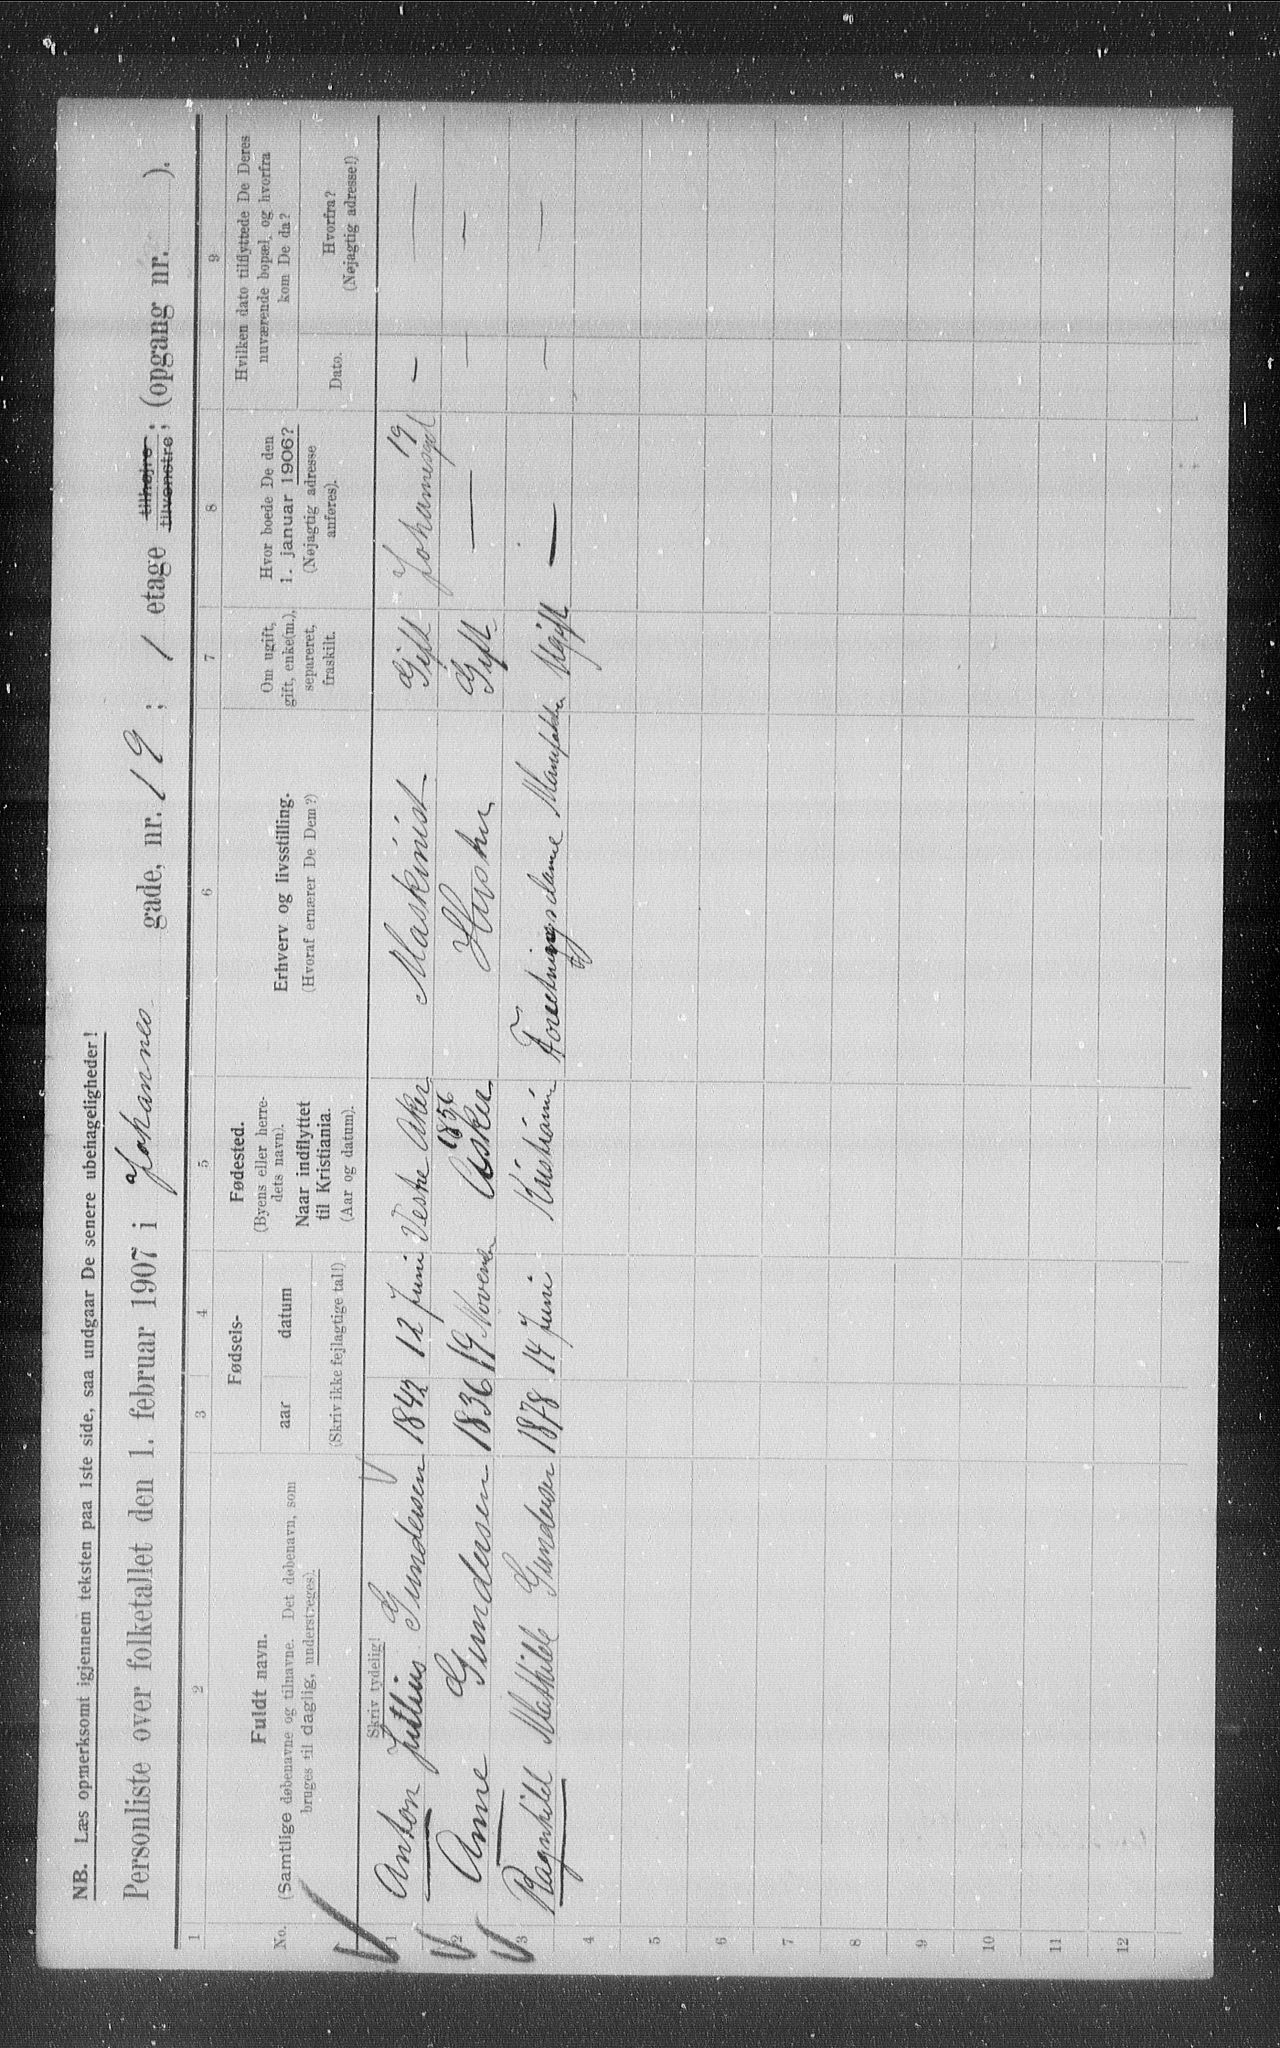 NB. Læs opmerksomt igjennem teksten paa 1ste side, saa undgaar De senere ubehageligheder!
Personliste over folketallet den 1. februar 1907 i Johannes gade, nr. 19 ; 1 etage tilhøjre, tilvenstre; (opgang nr. ).
1 2 3 4 5 6 7 8 9
No.
Fuldt navn.
(Samtlige døbenavne og tilnavne. Det døbenavn, som
bruges til daglig, understreges).
Skriv tydelig!
Fødsels-
aar datum
(Skriv ikke fejlagtige tal!)
Fødested.
(Byens eller herre-
dets navn).
Naar indflyttet
til Kristiania.
(Aar og datum).
Erhverv og livsstilling.
(Hvoraf ernærer De Dem?)
Om ugift,
gift, enke(m.),
separeret,
fraskilt.
Hvor boede De den
1. januar 1906?
(Nøjagtig adresse
anføres).
Hvilken dato tilflyttede De Deres
nuværende bopæl, og hvorfra
kom De da?
Dato.
Hvorfra?
(Nøjagtig adresse!)
1 Anton Jullius Gundersen 1842 12 Juni Vestre Aker Maskinist Gift Johannesgt 19 — —
1856
2 Anne Gundersen 1836 19 November Asker Hustru Gift — — —
3 Ragnhild Mathilde Gundersen 1878 14 Juni Kristiania Forretningsdame Ugift — — —
4
5
6
7
8
9
10
11
12